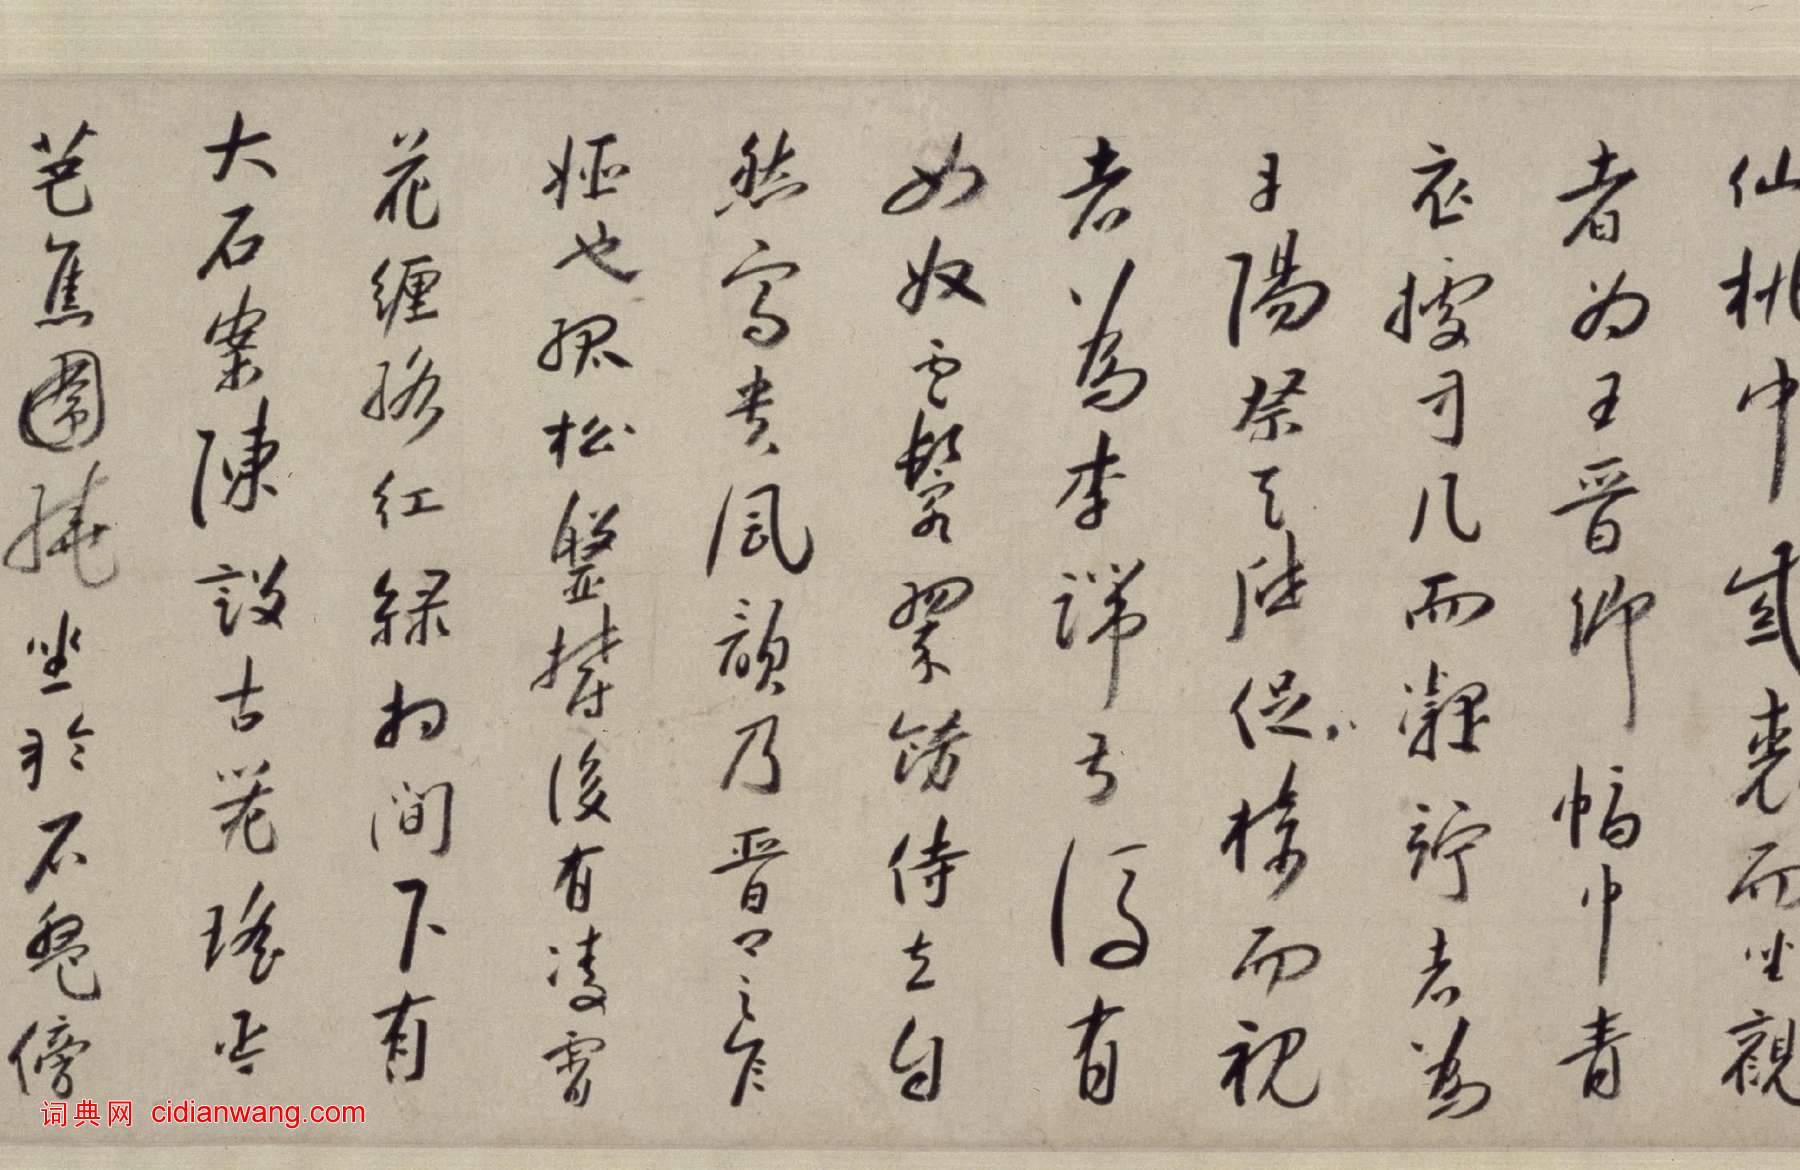 仙桃巾紫裘而坐觀
者为王晋卿幅巾青
衣據方几而凝竚者為
丹陽蔡天啟捉椅而視
者為李端叔後有
女奴雲鬟翠飾侍立自
然富貴風韻乃晋卿之家
姬也孤松盤鬱後有凌霄
花纏絡紅綠相間下有
大石案陳設古器瑤琴
芭蕉圍繞坐於石盤傍
词典网 cidianwang.com